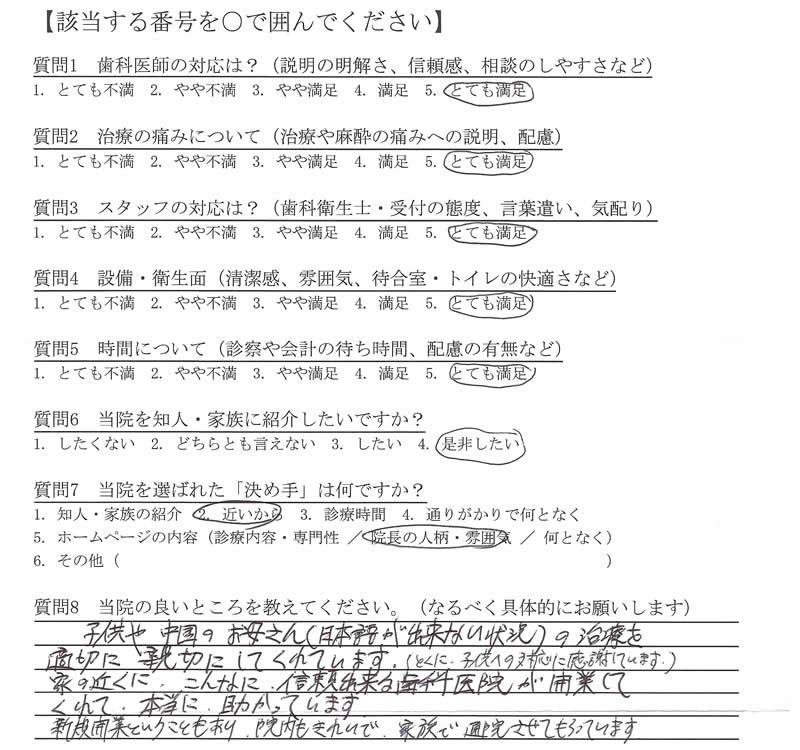 【該当する番号を○で囲んでください】
質問1　歯科医師の対応は？（説明の明解さ、信頼感、相談のしやすさなど）
1. とても不満　2. やや不満　3. やや満足　4. 満足　5. とても満足
質問2　治療の痛みについて（治療や麻酔の痛みへの説明、配慮）
1. とても不満　2. やや不満　3. やや満足　4. 満足　5. とても満足
質問3　スタッフの対応は？（歯科衛生士・受付の態度、言葉遣い、気配り）
1. とても不満　2. やや不満　3. やや満足　4. 満足　5. とても満足
質問4　設備・衛生面（清潔感、雰囲気、待合室・トイレの快適さなど）
1. とても不満　2. やや不満　3. やや満足　4. 満足　5. とても満足
質問5　時間について（診察や会計の待ち時間、配慮の有無など）
1. とても不満　2. やや不満　3. やや満足　4. 満足　5. とても満足
質問6　当院を知人・家族に紹介したいですか？
1. したくない　2. どちらとも言えない　3. したい　4. 是非したい
質問7　当院を選ばれた「決め手」は何ですか？
1. 知人・家族の紹介　2. 近いから　3. 診療時間　4. 通りがかりで何となく
5. ホームページの内容（診療内容・専門性 ／ 院長の人柄・雰囲気 ／ 何となく）
6. その他（　　　　　　　　　　）
質問8　当院の良いところを教えてください。（なるべく具体的にお願いします）
子供や中国のお母さん（日本語が出来ない状況）の治療を
適切に親切にしてくれています.（とくに.子供への対応に感謝しています.）
家の近くに.こんなに.信頼出来る歯科医院が開業して
くれて.本当に.助かっています
新規開業ということもあり.院内もきれいで.家族で通院させてもらっています